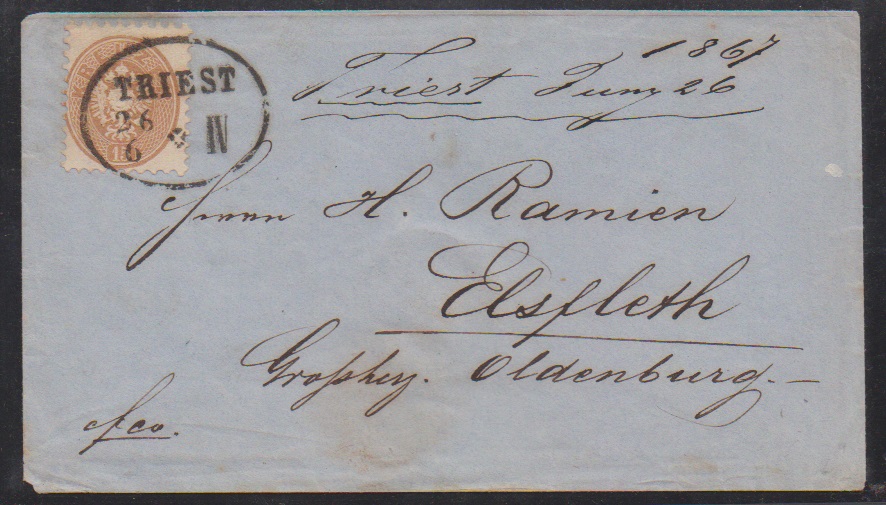 TRIEST
26 IV
6
1867
Triest Juny 26
Herrn H. Ramien
Elsfleth
Großherz. Oldenburg.—
fco.